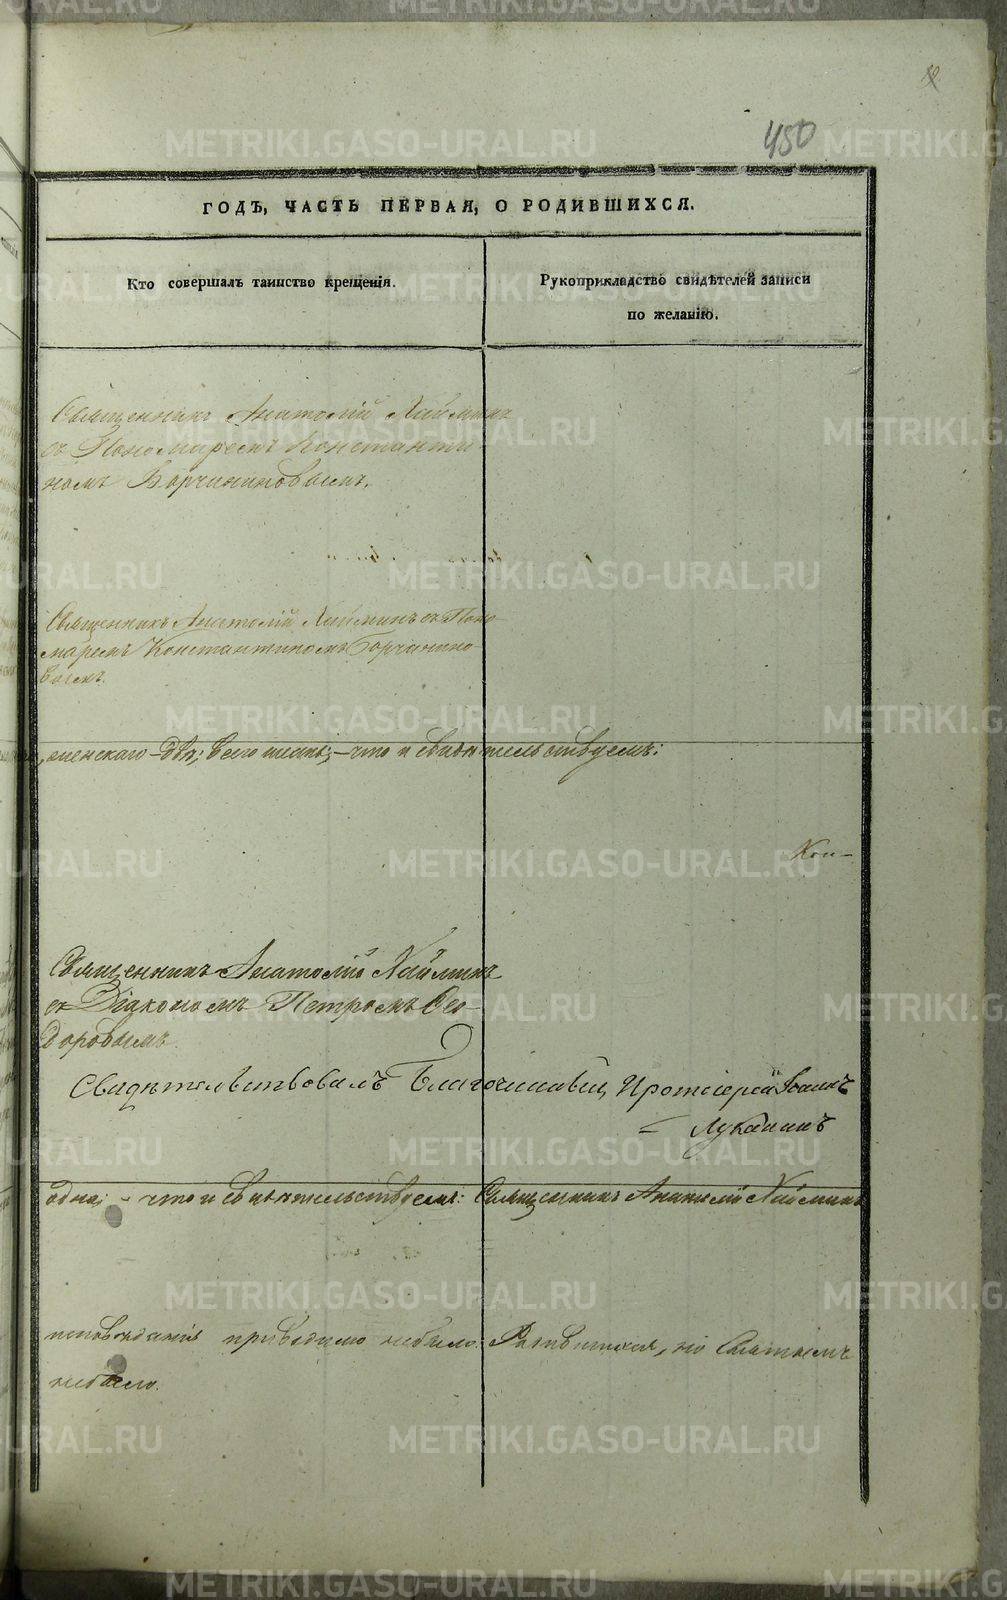 450
ГОДЪ, ЧАСТЬ ПЕРВАЯ, О РОДИВШИХСЯ.
Кто совершалъ таинство крещенія.
Рукоприкладство свидѣтелей записи
по желанію.
Священникъ Анатолій Хаймин
съ Пономаремъ Константи
номъ Борчаниновымъ.
Священникъ Анатолій Хайминъ съ Поно
маремъ Константиномъ Борчанино
вымъ.
менскаго двѣ; всего шесть; – что и свидѣтельствуемъ:
Священникъ Анатолій Хайминъ
съ Діакономъ Петромъ Ѳео-
доровымъ.
Свидѣтельствовалъ Благочинный, Протоіерей Іоаннъ
Луканинъ
одна; – что и свидѣтельствуемъ: Священникъ Анатолій Хайминъ
исповѣданія приводимо небыло. но Святымъ
небыло.
METRIKI.GASO-URAL.RU